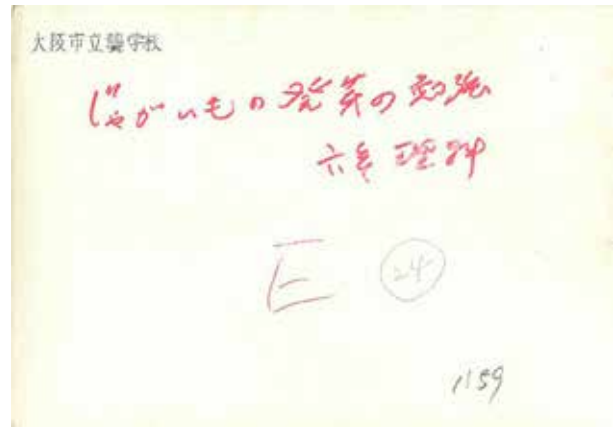 大阪市立聾学校
じゃがいもの発芽の勉強
六年 理科
E
24
1159